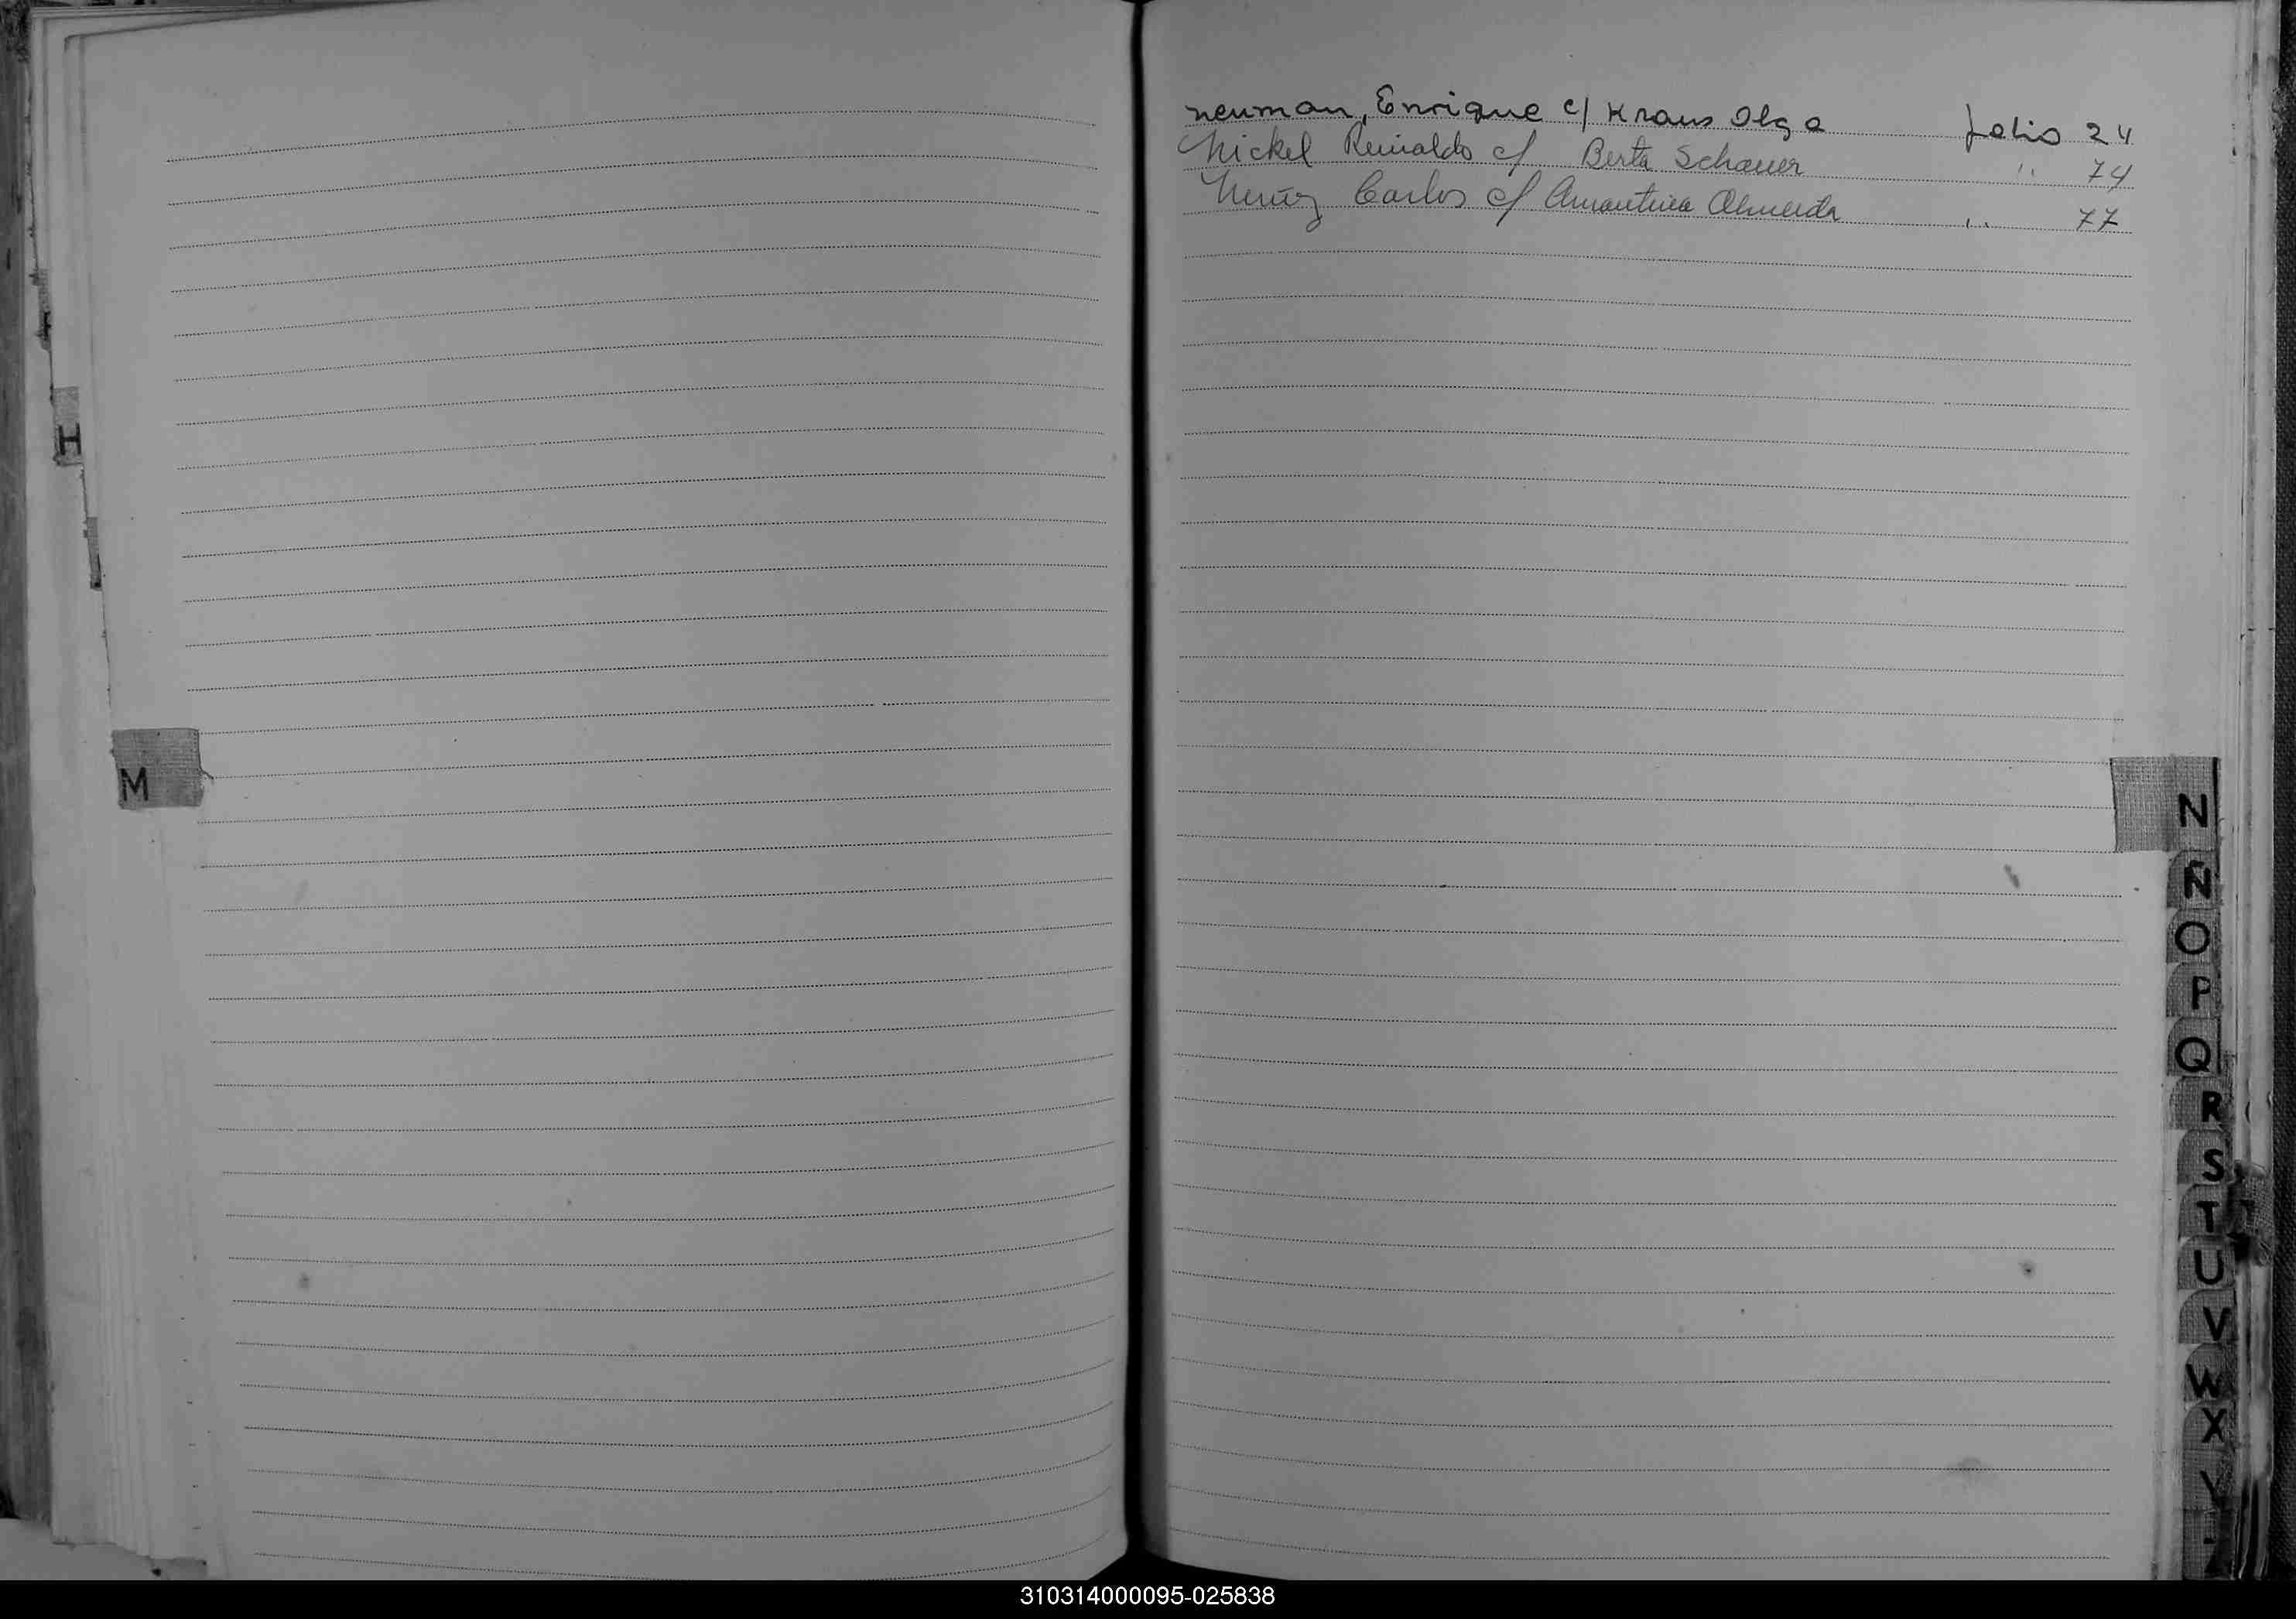 neuman, Enrique c/ Kraus Olga folio 24
Nickel Reinaldo c/ Berta Schauer " 74
Nuñez Carlos c/ Almeida " 77
H
M
N
Ñ
O
P
Q
R
S
T
U
V
W
X
Y
310314000095-025838